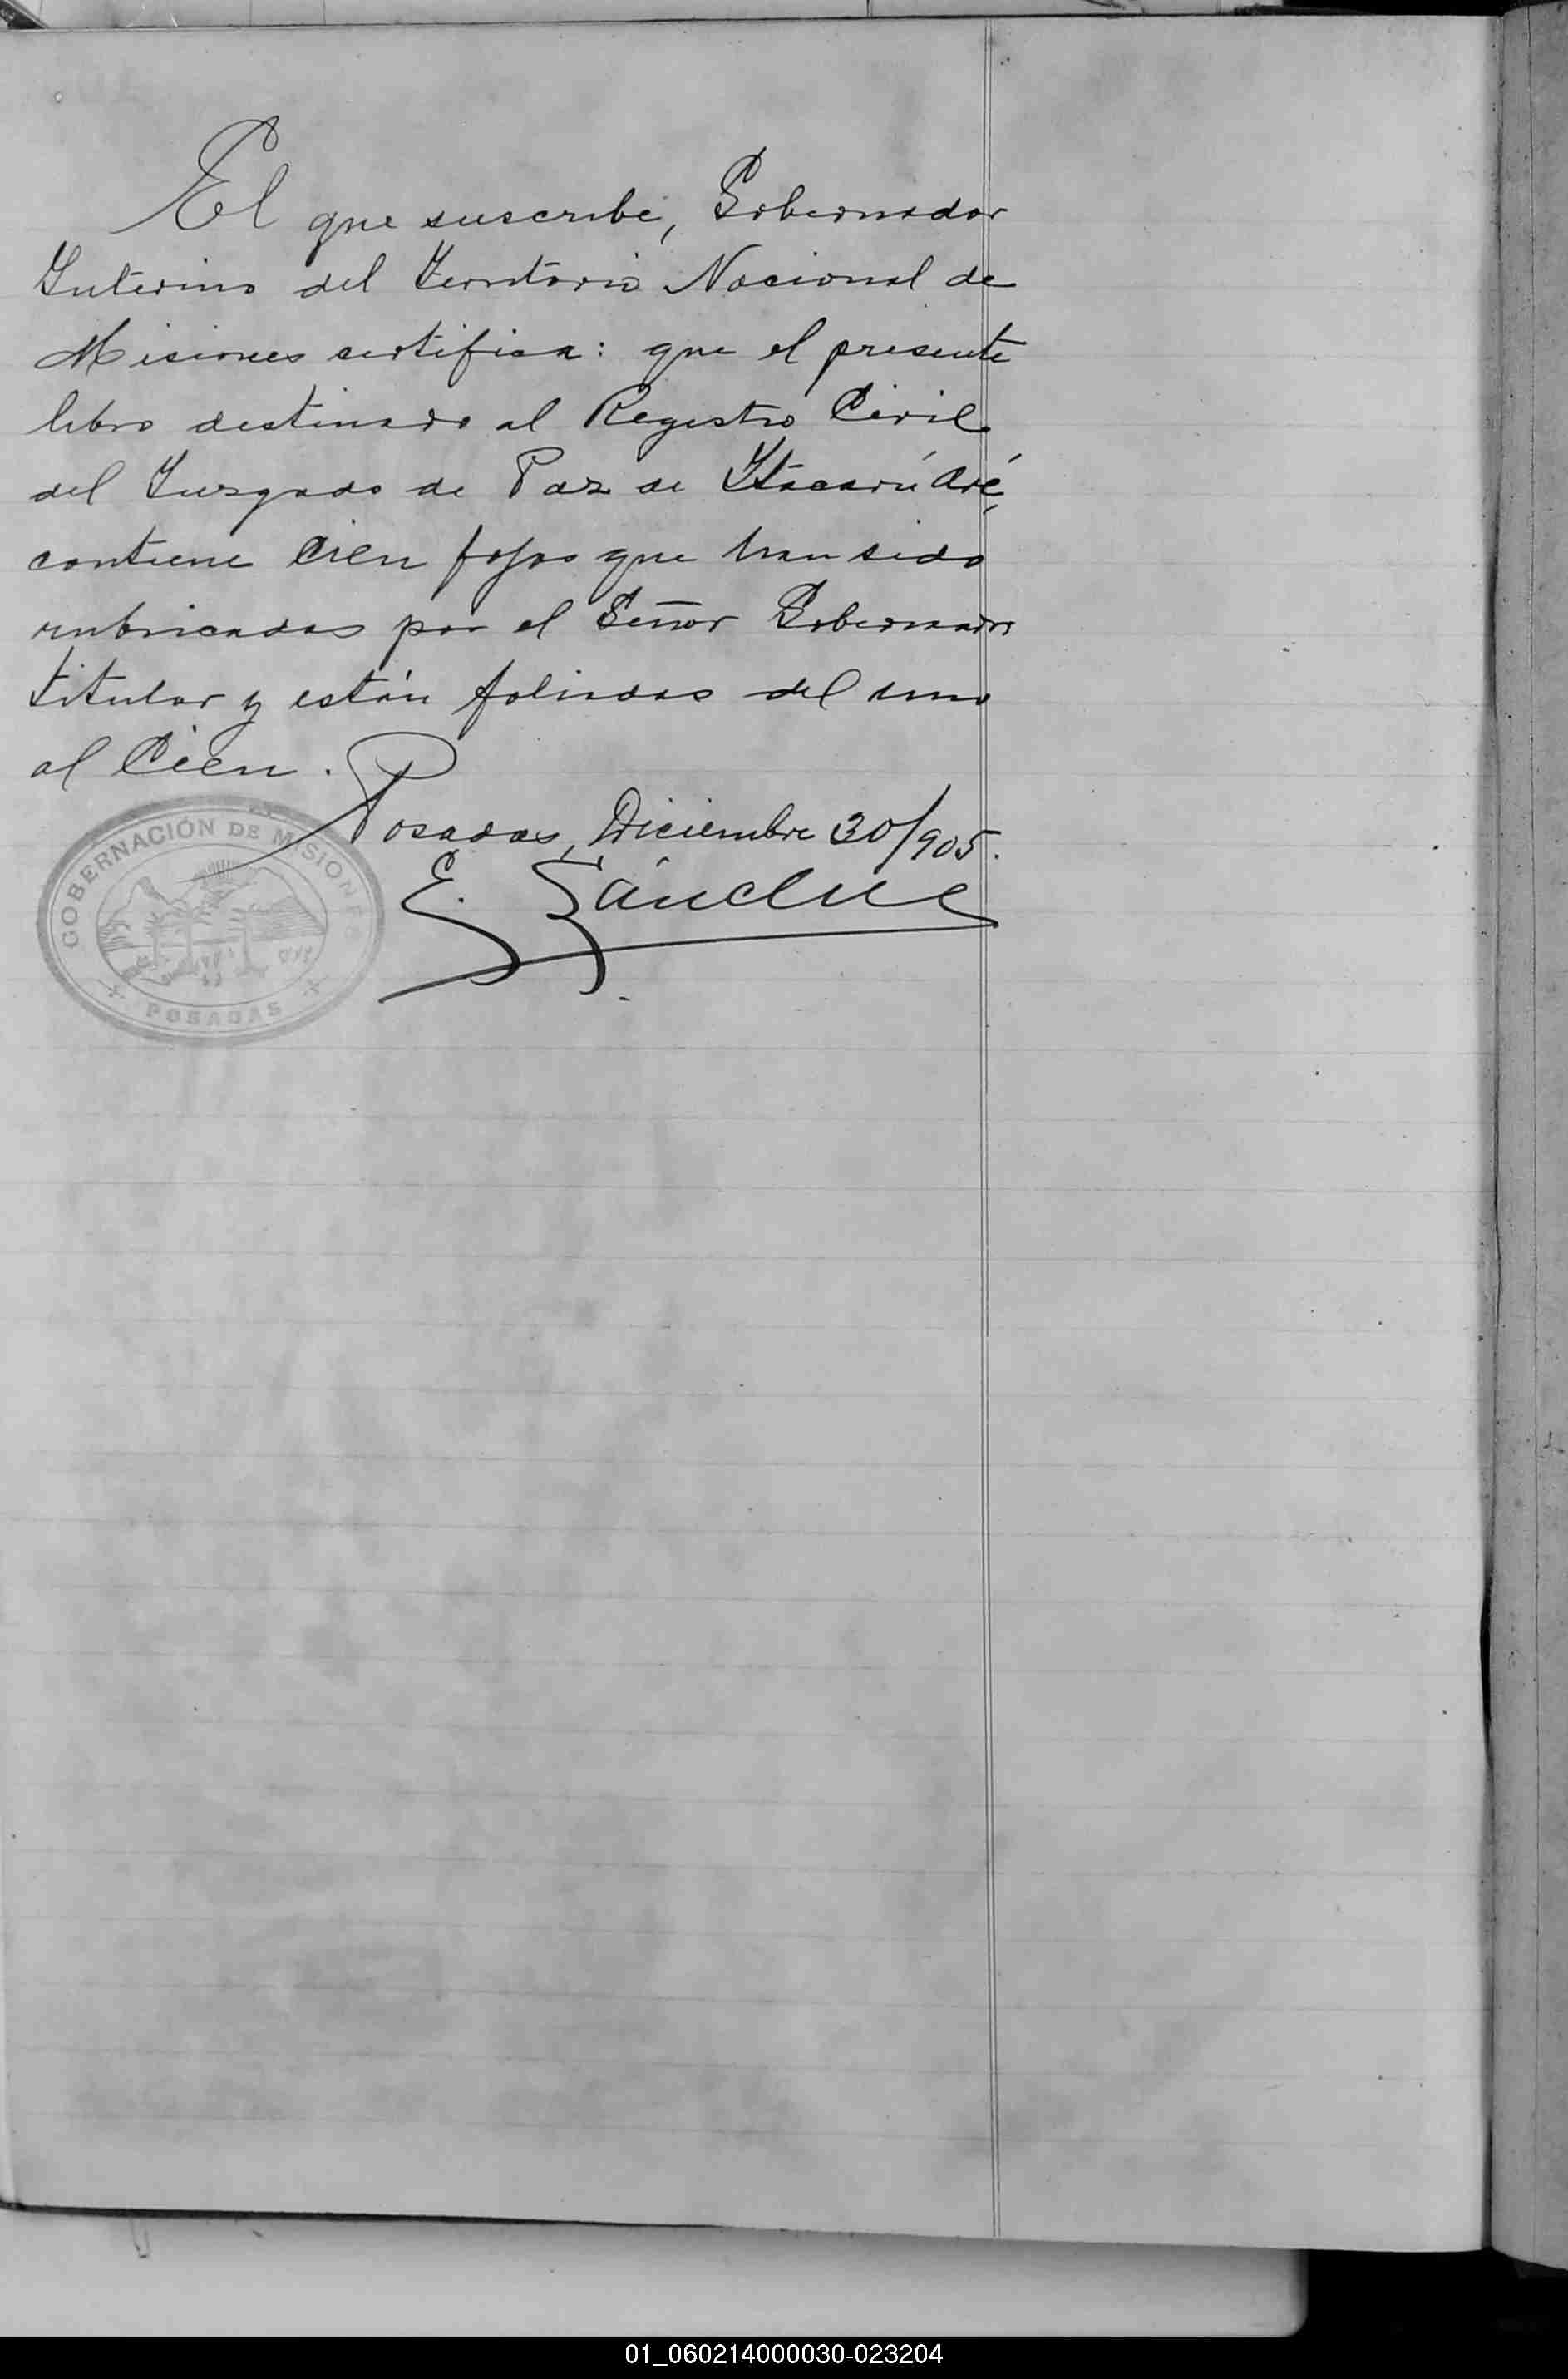 El que suscribe, Gobernador
Interino del Territorio Nacional de
Misiones certifica: que el presente
libro destinado al Registro Civil
del Juzgado de Paz de Itacarúaré,
contiene cien fojas que han sido
rubricadas por el Señor Gobernador
titular y están foliadas del uno
al Cien.
Posadas, Diciembre 30/905.
E. Sánchez
GOBERNACIÓN DE MISIONES
POSADAS
01_060214000030-023204